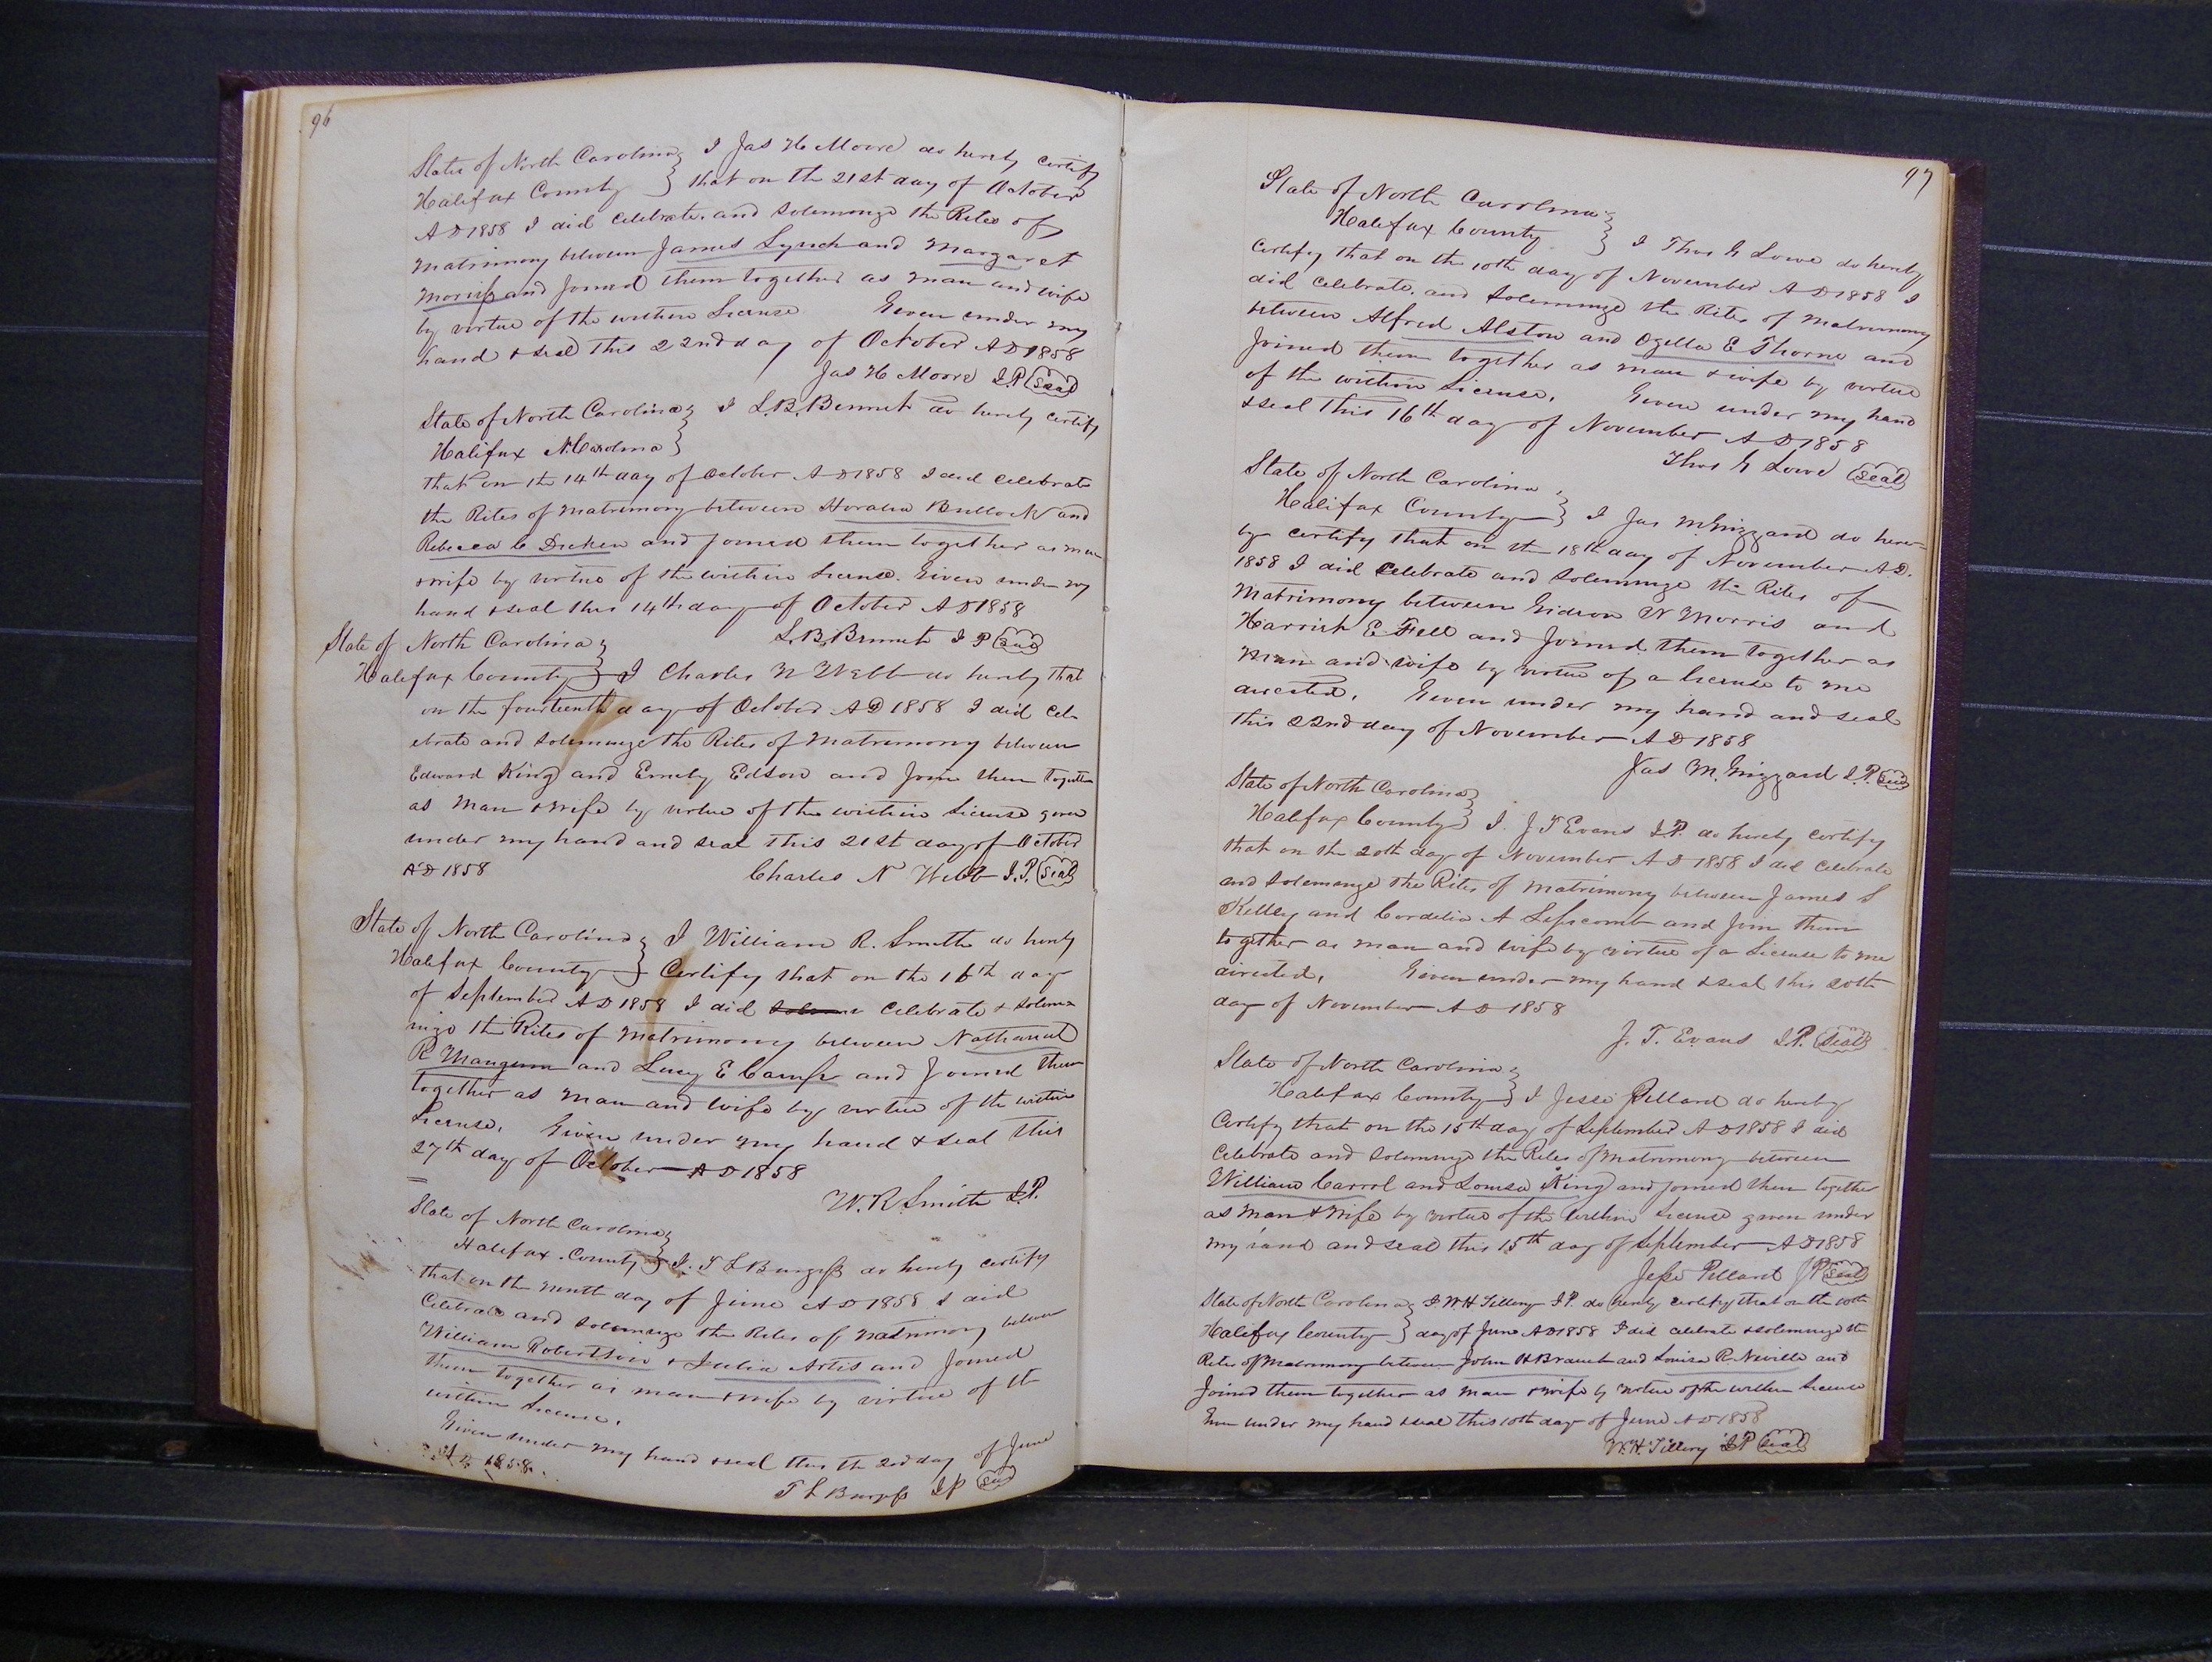 96
State of North Carolina } I Jas H Moore do hereby certify
Halifax County } that on the 21st day of October
A D 1858 I did celebrate and solemnize the Rites of
Matrimony between James Lynch and Margaret
Morriss and Joined them together as man and wife
by virtue of the within License Given under my
hand & seal this 22nd day of October A D 1858
Jas H Moore J.P. (seal)
State of North Carolina } I L.B. Bennet do hereby certify
Halifax N. Carolina }
that on the 14th day of October A D 1858 I did celebrate
the Rites of Matrimony between Bullock and
Rebecca C Dicken and joined them together as man
& wife by virtue of the within License. Given under my
hand & seal this 14th day of October A D 1858
L.B. Bennet J P (seal)
State of North Carolina }
Halifax County } I Charles N Webb do hereby that
on the fourteenth day of October A D 1858 I did cel-
ebrate and solemnize the Rites of Matrimony between
Edward King and Emely Edson and Join them together
as Man & wife by virtue of the within License given
under my hand and seal this 21st day of October
A D 1858 Charles N Webb J.P. (Seal)
State of North Carolina } I William R. Smith do hereby
Halifax County } Certify that on the 16th day
of September A D 1858 I did celebrate & solem
nize the Rites of Matrimony between Nathaniel
R Mangum and Lucy E Camp and Joined them
together as Man and Wife by virtue of the within
License. Given under my hand & seal this
27th day of October A D 1858
W. R. Smith J.P.
State of North Carolina }
Halifax County } I. T L Burgess do hereby certify
that on the ninth day of June A D 1858 I did
Celebrate and solemnize the Rites of Matrimony between
William Robertson & Julia Artis and Joined
them together as man & wife by virtue of the
within License.
Given under my hand & seal this the 2nd day of June
A D 1858
T L Burgess J P (seal)
97
State of North Carolina }
Halifax County } I Thos G Lowe do hereby
certify that on the 10th day of November A D 1858 I
did celebrate and solemnize the Rites of Matrimony
between Alfred Alston and Ogella E Thorne and
Joined them together as man & wife by virtue
of the within License. Given under my hand
& seal this 16th day of November A D 1858
Thos G Lowe (seal)
State of North Carolina }
Halifax County } I Jas M Grizzard do here-
by certify that on the 18th day of November A D.
1858 I did celebrate and solemnize the Rites of
Matrimony between Gideon N Morris and
Harriet E Fell and Joined them together as
Man and wife by virtue of a license to me
directed. Given under my hand and seal
this 22nd day of November A D 1858
Jas M. Grizzard J.P. (seal)
State of North Carolina }
Halifax County } I. J T Evans J.P. do hereby certify
that on the 20th day of November A D 1858 I did celebrate
and solemnize the Rites of Matrimony between James S
Kelley and Cordelia A Lipscomb and Join them
together as man and wife by virtue of a License to me
directed. Given under my hand & seal this 20th
day of November A D 1858
J. T. Evans J.P. (seal)
State of North Carolina }
Halifax County } I Jesse Pullard do hereby
Certify that on the 15th day of September A D 1858 I did
Celebrate and solemnize the Rites of Matrimony between
William Carrol and Louisa King and joined them together
as Man & Wife by virtue of the within License given under
my hand and seal this 15th day of September A D 1858
Jesse Pullard JP (Seal)
State of North Carolina } I. W H Tillery J.P. do hereby certify that on the 10th
Halifax County } day of June A D 1858 I did celebrate & solemnize the
Rites of Matrimony between John H Branch and Louisa R. Neville and
Joined them together as Man & wife by virtue of the within License
Given under my hand & seal this 10th day of June A D 1858
W. H. Tillery J P (seal)